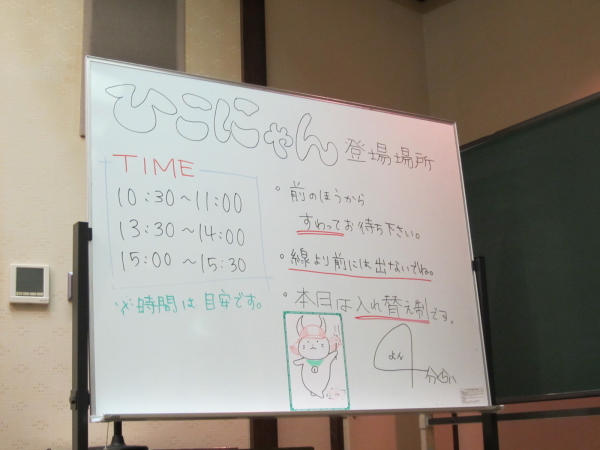 ひこにゃん 登場場所
TIME
10:30~11:00
13:30~14:00
15:00~15:30
※時間は目安です。
・前のほうから
すわってお待ち下さい。
・線より前には出ないでね。
・本日は入れ替え制です。
よん